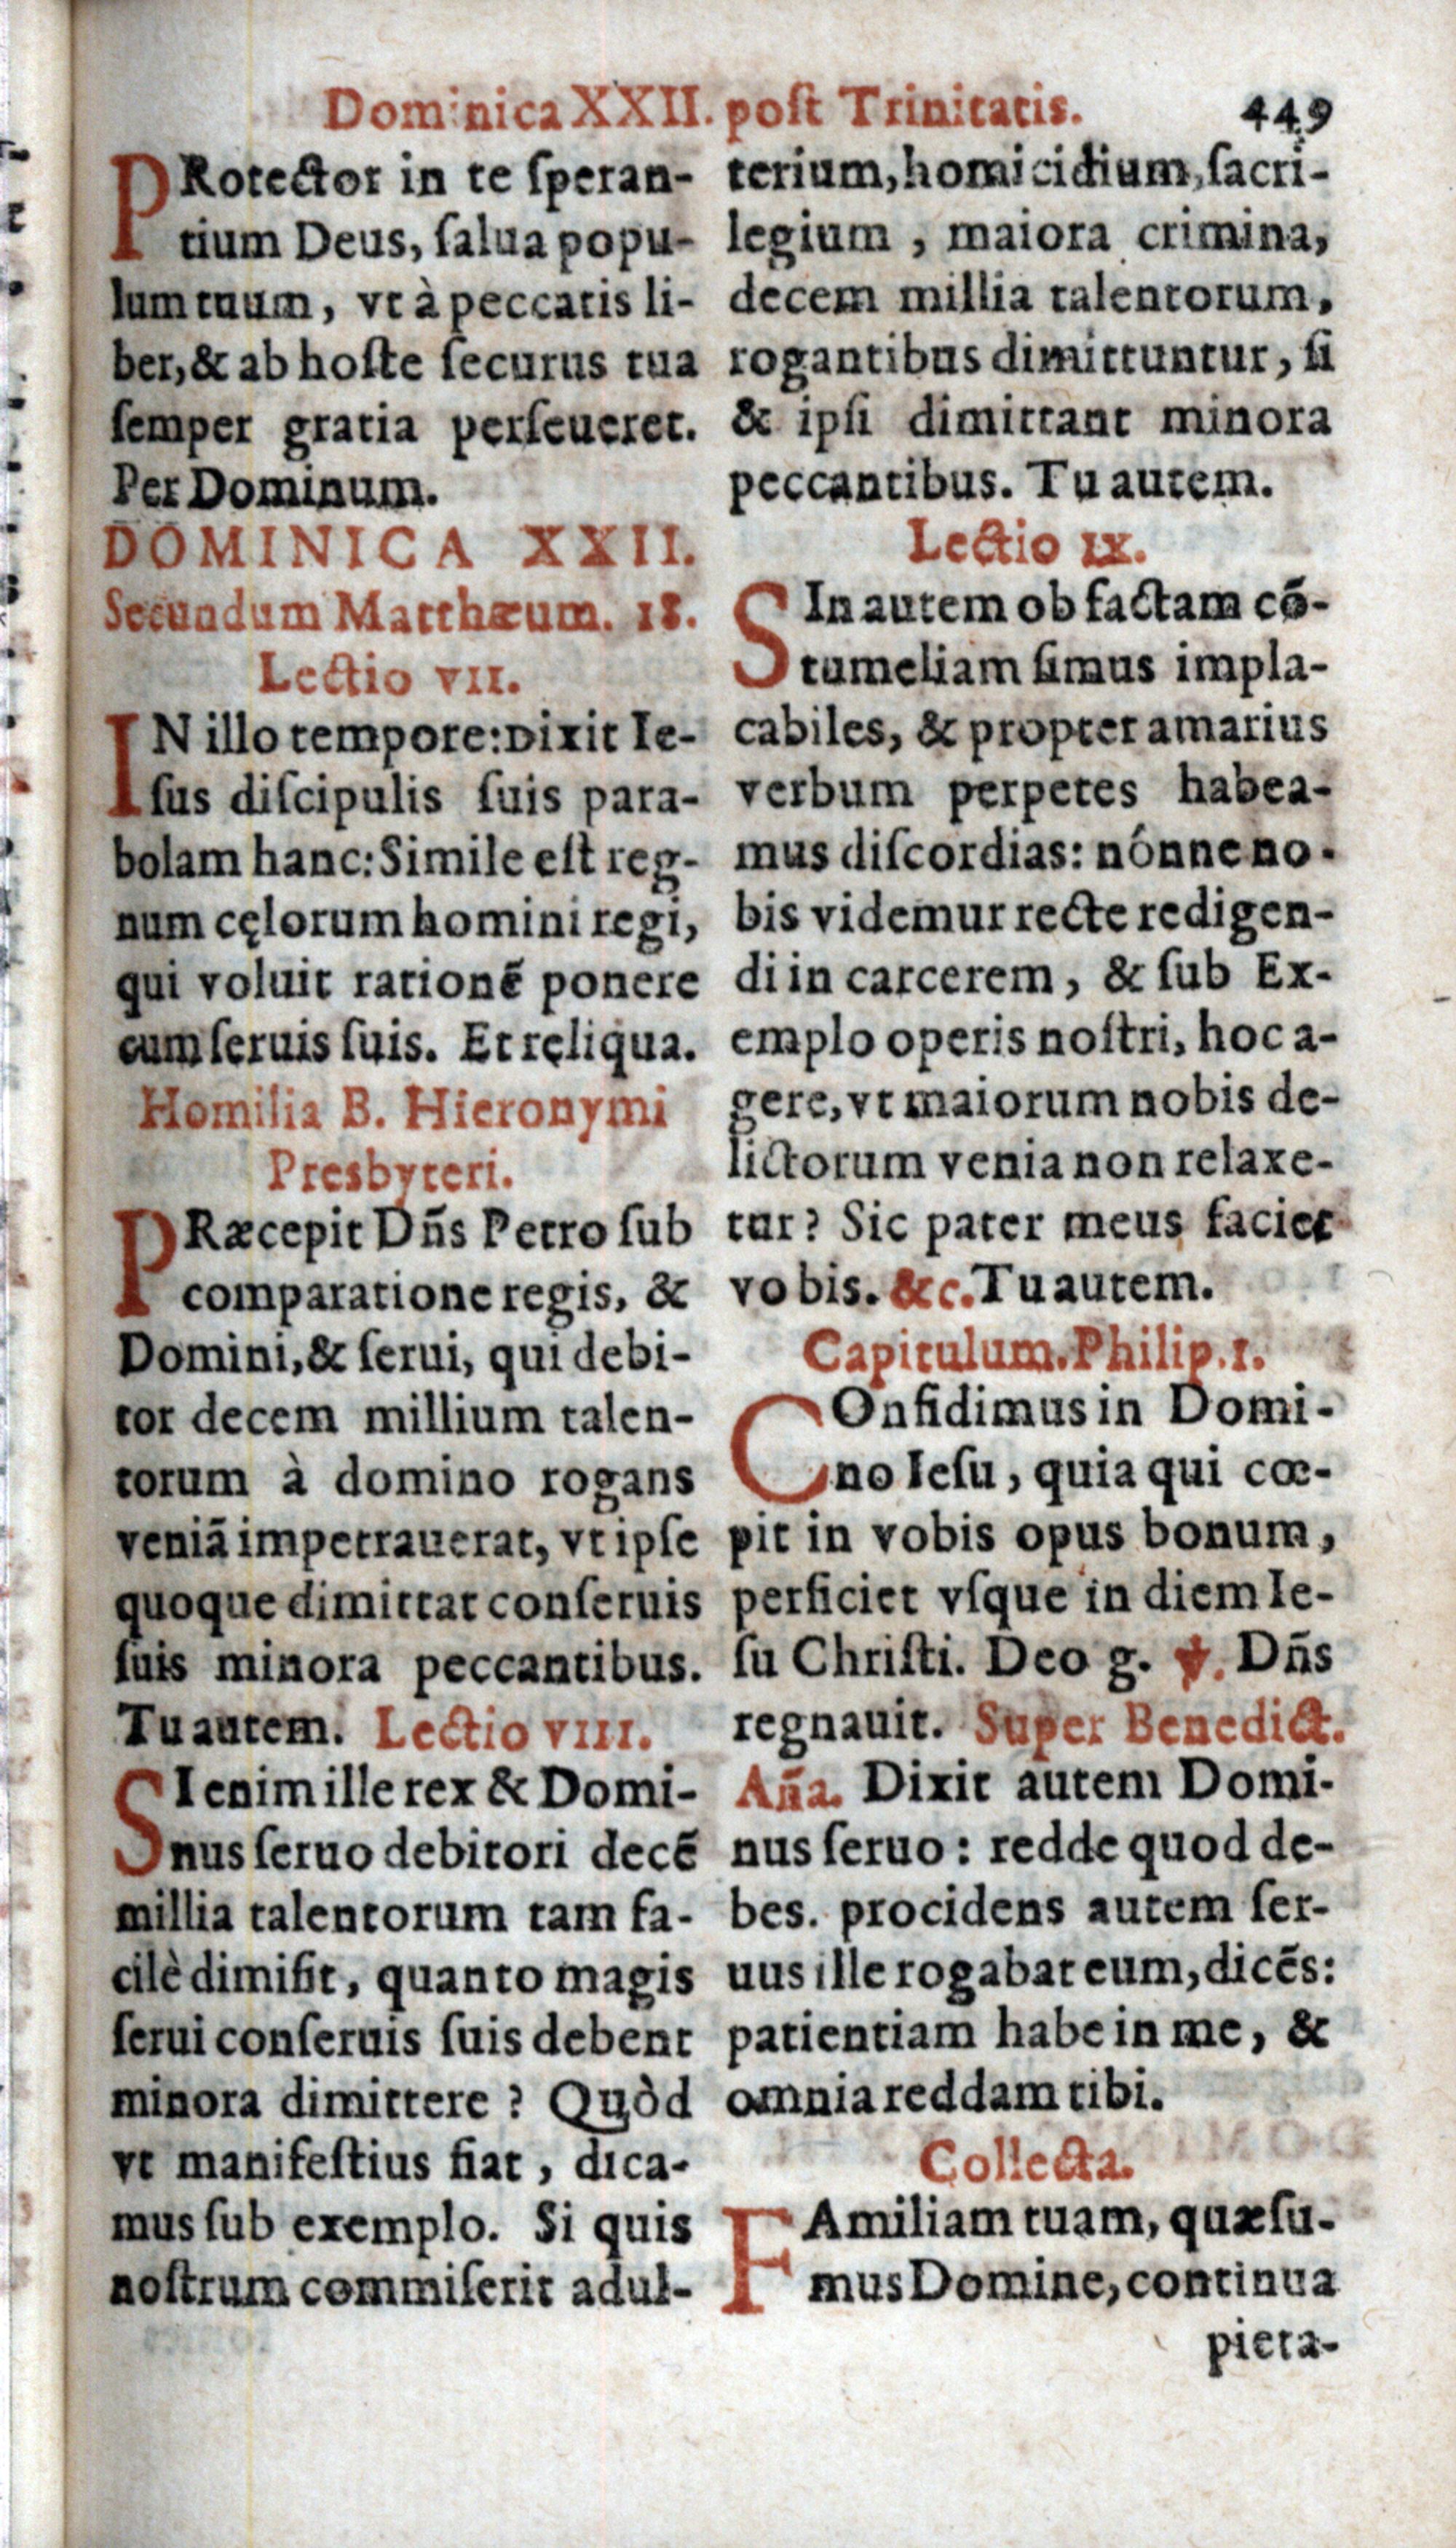 Dominica XXII. poſt Trinitatis. 449
PRotector in te ſperan-
tium Deus, ſalua popu-
lum tuum, vt à peccatis li-
ber, & ab hoſte ſecurus tua
ſemper gratia perſeueret.
Per Dominum.
DOMINICA XXII.
Secundum Matthæum. 18.
Lectio VII.
IN illo tempore: Dixit Ie-
ſus diſcipulis ſuis para-
bolam hanc: Simile eſt reg-
num cęlorum homini regi,
qui voluit rationē ponere
cum ſeruis ſuis. Et ręliqua.
Homilia B. Hieronymi
Presbyteri.
PRæcepit Dñs Petro ſub
comparatione regis, &
Domini, & ſerui, qui debi-
tor decem millium talen-
torum à domino rogans
veniā impetrauerat, vt ipſe
quoque dimittat conſeruis
ſuis minora peccantibus.
Tu autem. Lectio VIII.
SI enim ille rex & Domi-
nus ſeruo debitori decē
millia talentorum tam fa-
cilè dimiſit, quanto magis
ſerui conſeruis ſuis debent
minora dimittere? Quòd
vt manifeſtius fiat, dica-
mus ſub exemplo. Si quis
noſtrum commiſerit adul-
terium, homicidium, ſacri-
legium, maiora crimina,
decem millia talentorum,
rogantibus dimittuntur, ſi
& ipſi dimittant minora
peccantibus. Tu autem.
Lectio IX.
SIn autem ob factam cō-
tumeliam ſimus impla-
cabiles, & propter amarius
verbum perpetes habea-
mus diſcordias: nónne no-
bis videmur recte redigen-
di in carcerem, & ſub Ex-
emplo operis noſtri, hoc a-
gere, vt maiorum nobis de-
lictorum venia non relaxe-
tur? Sic pater meus faciet
vobis. &c. Tu autem.
Capitulum. Philip. 1.
COnfidimus in Domi-
no Ieſu, quia qui cœ-
pit in vobis opus bonum,
perficiet vſque in diem Ie-
ſu Chriſti. Deo g. ℣. Dñs
regnauit. Super Benedict.
Aña. Dixit autem Domi-
nus ſeruo: redde quod de-
bes. procidens autem ſer-
uus ille rogabat eum, dicēs:
patientiam habe in me, &
omnia reddam tibi.
Collecta.
FAmiliam tuam, quæſu-
mus Domine, continua
pieta-